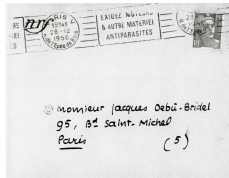 nrf
PARIS V
28-12
1950
EXIGEZ MOTEURS
& AUTRE MATERIEL
ANTIPARASITES
Monsieur Jacques Debû-Bridel
95, Bd Saint-Michel
Paris (5)